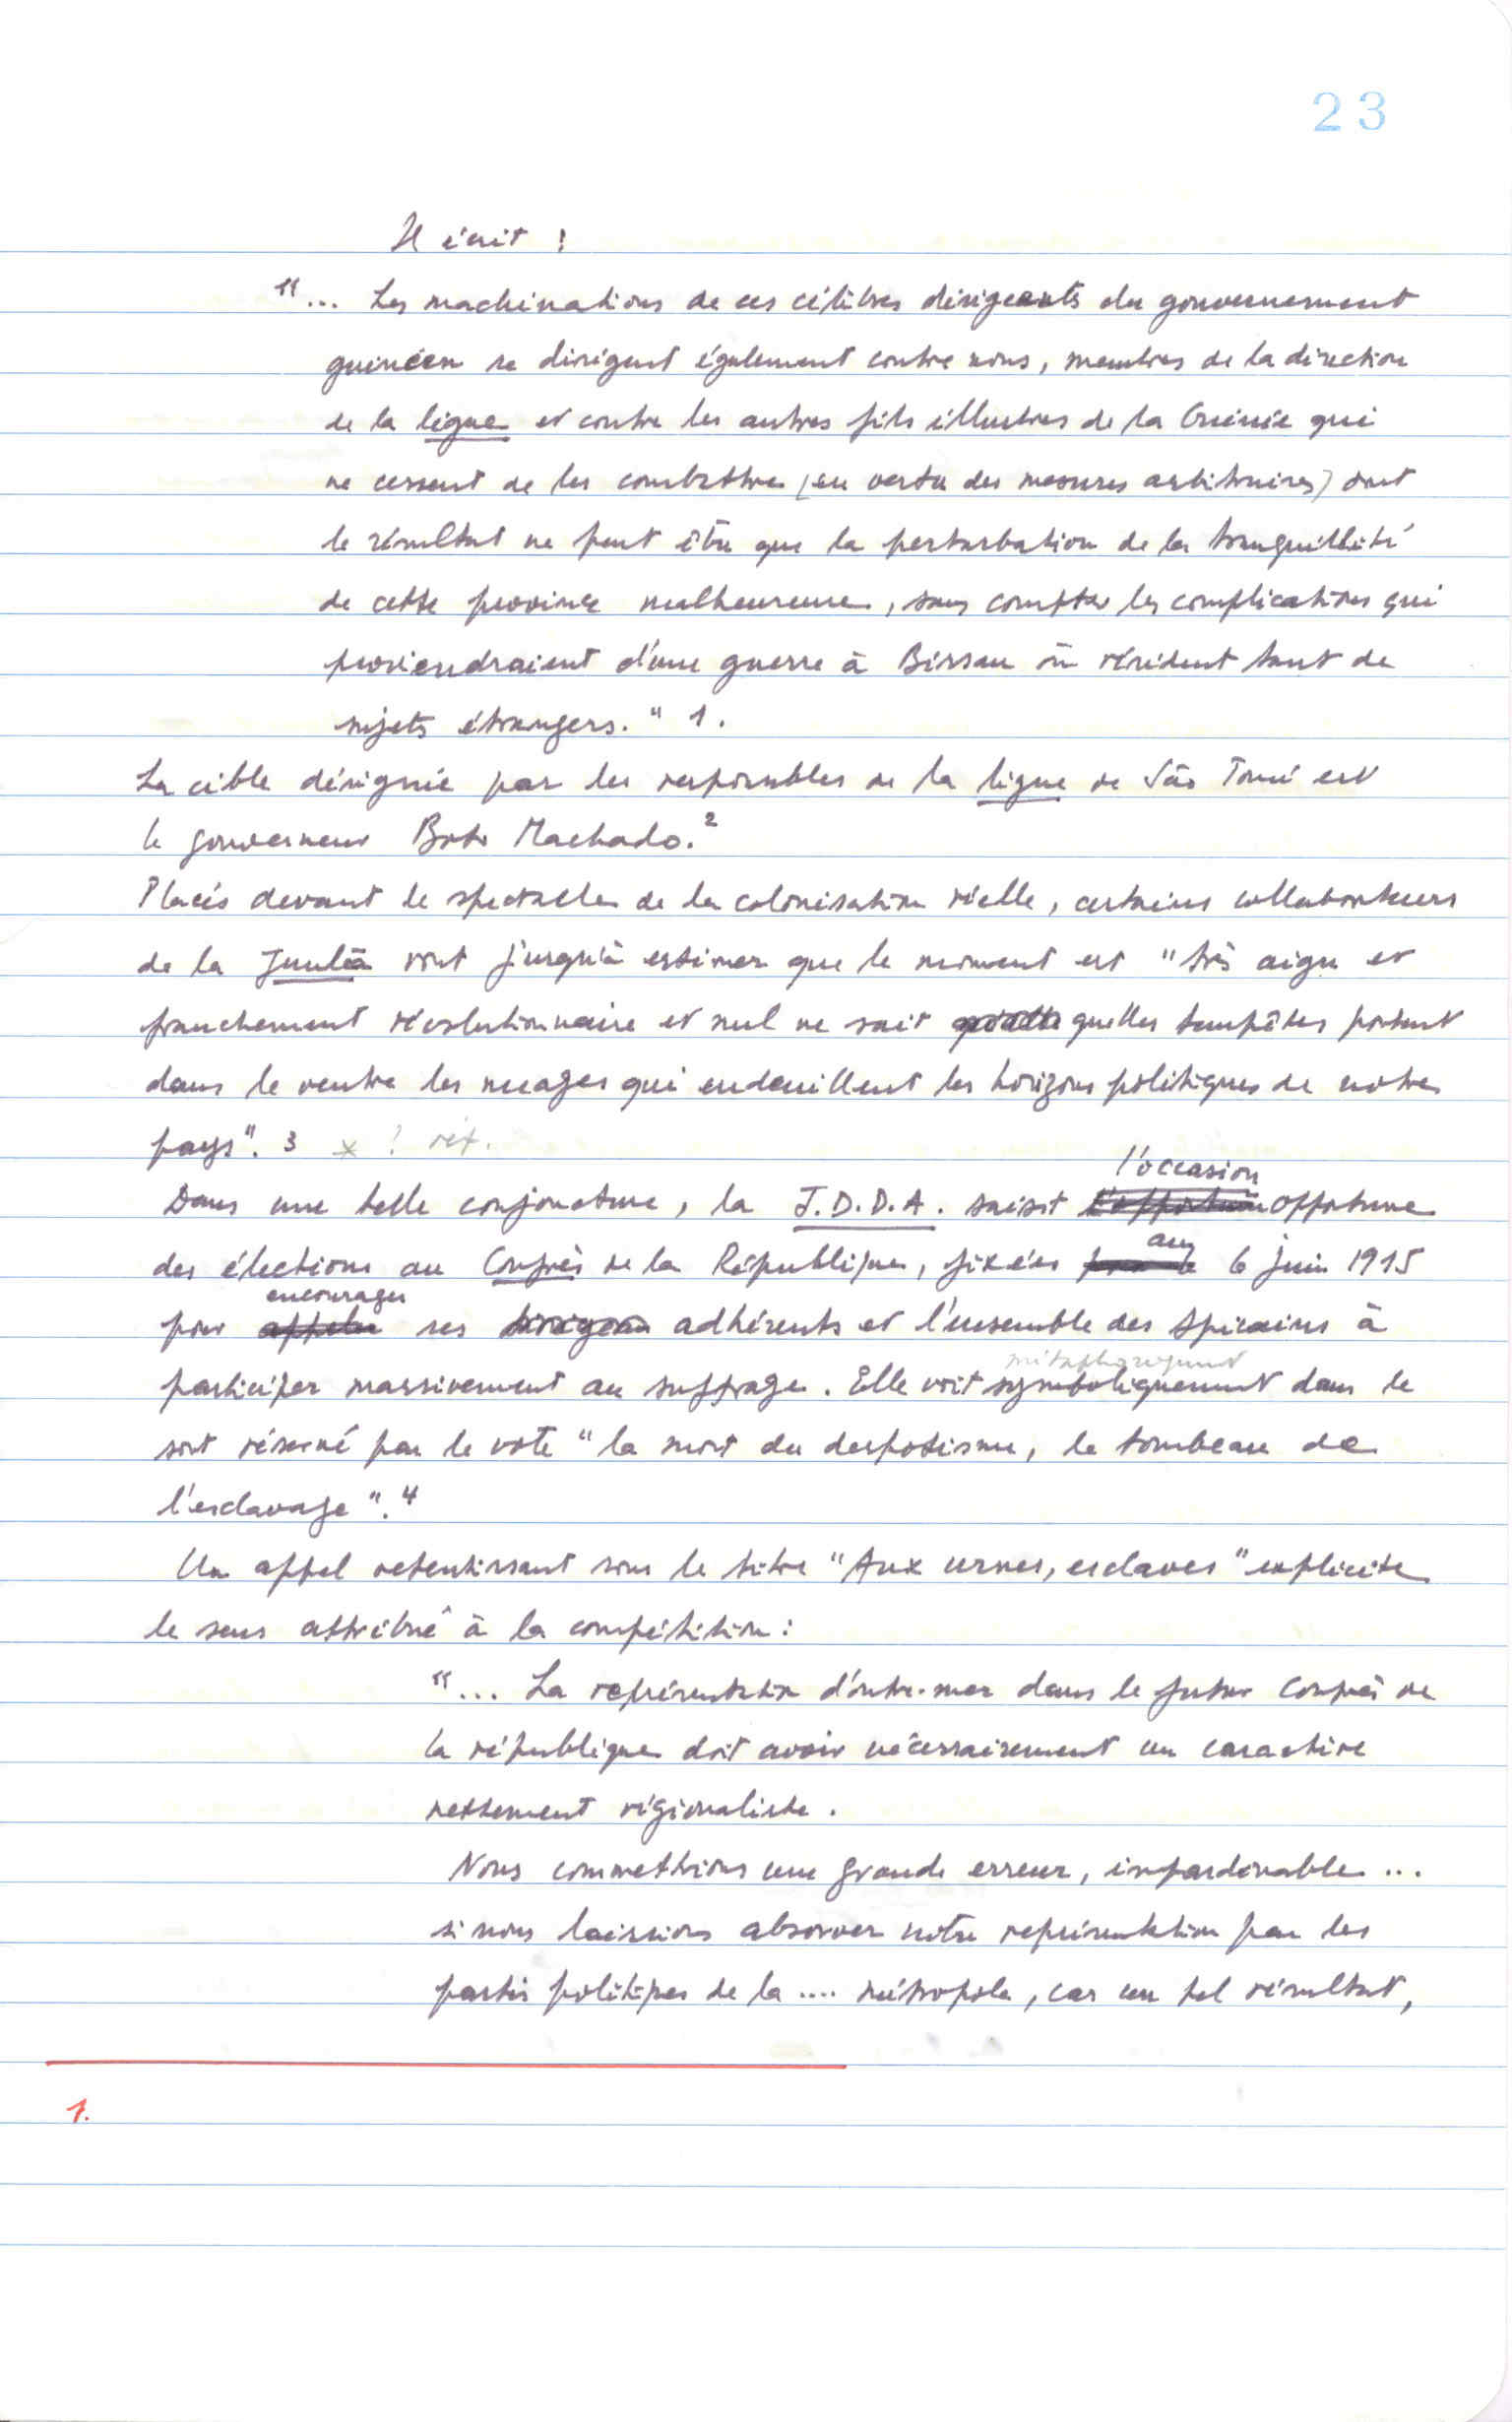 23
Il écrit :
"... Les machinations de ces célèbres dirigeants du gouvernement
guinéen se dirigent également contre nous, membres de la direction
de la ligue et contre les autres fils illustres de la Guinée qui
ne cessent de les combattre (en vertu des mesures arbitraires) dont
le résultat ne peut être que la perturbation de la tranquillité
de cette province malheureuse, sans compter les complications qui
proviendraient d'une guerre à Bissau où résident tant de
sujets étrangers." 1.
La cible désignée par les responsables de la ligue de São Tomé est
le gouverneur Boto Machado.²
Placés devant le spectacle de la colonisation réelle, certains collaborateurs
de la Junta vont jusqu'à estimer que le moment est "très aigu et
franchement révolutionnaire et nul ne sait quelles tempêtes portent
dans le ventre les nuages qui endeuillent les horizons politiques de notre
pays". 3 * ? réf.
Dans une telle conjoncture, la J.D.D.A. saisit l'occasion opportune
des élections au Congrès de la République, fixées au 6 juin 1915
pour encourager ses adhérents et l'ensemble des Africains à
métaphoriquement
participer massivement au suffrage. Elle voit symboliquement dans le
sort réservé par le vote "la mort du despotisme, le tombeau de
l'esclavage".4
Un appel retentissant sous le titre "Aux urnes, esclaves" explicite
le sens attribué à la compétition :
"... La représentation d'outre-mer dans le futur Congrès de
la république doit avoir nécessairement un caractère
nettement régionaliste.
Nous commettrions une grande erreur, impardonable ...
si nous laissions absorver notre représentation par les
partis politiques de la .... métropole, car un tel résultat,
1.